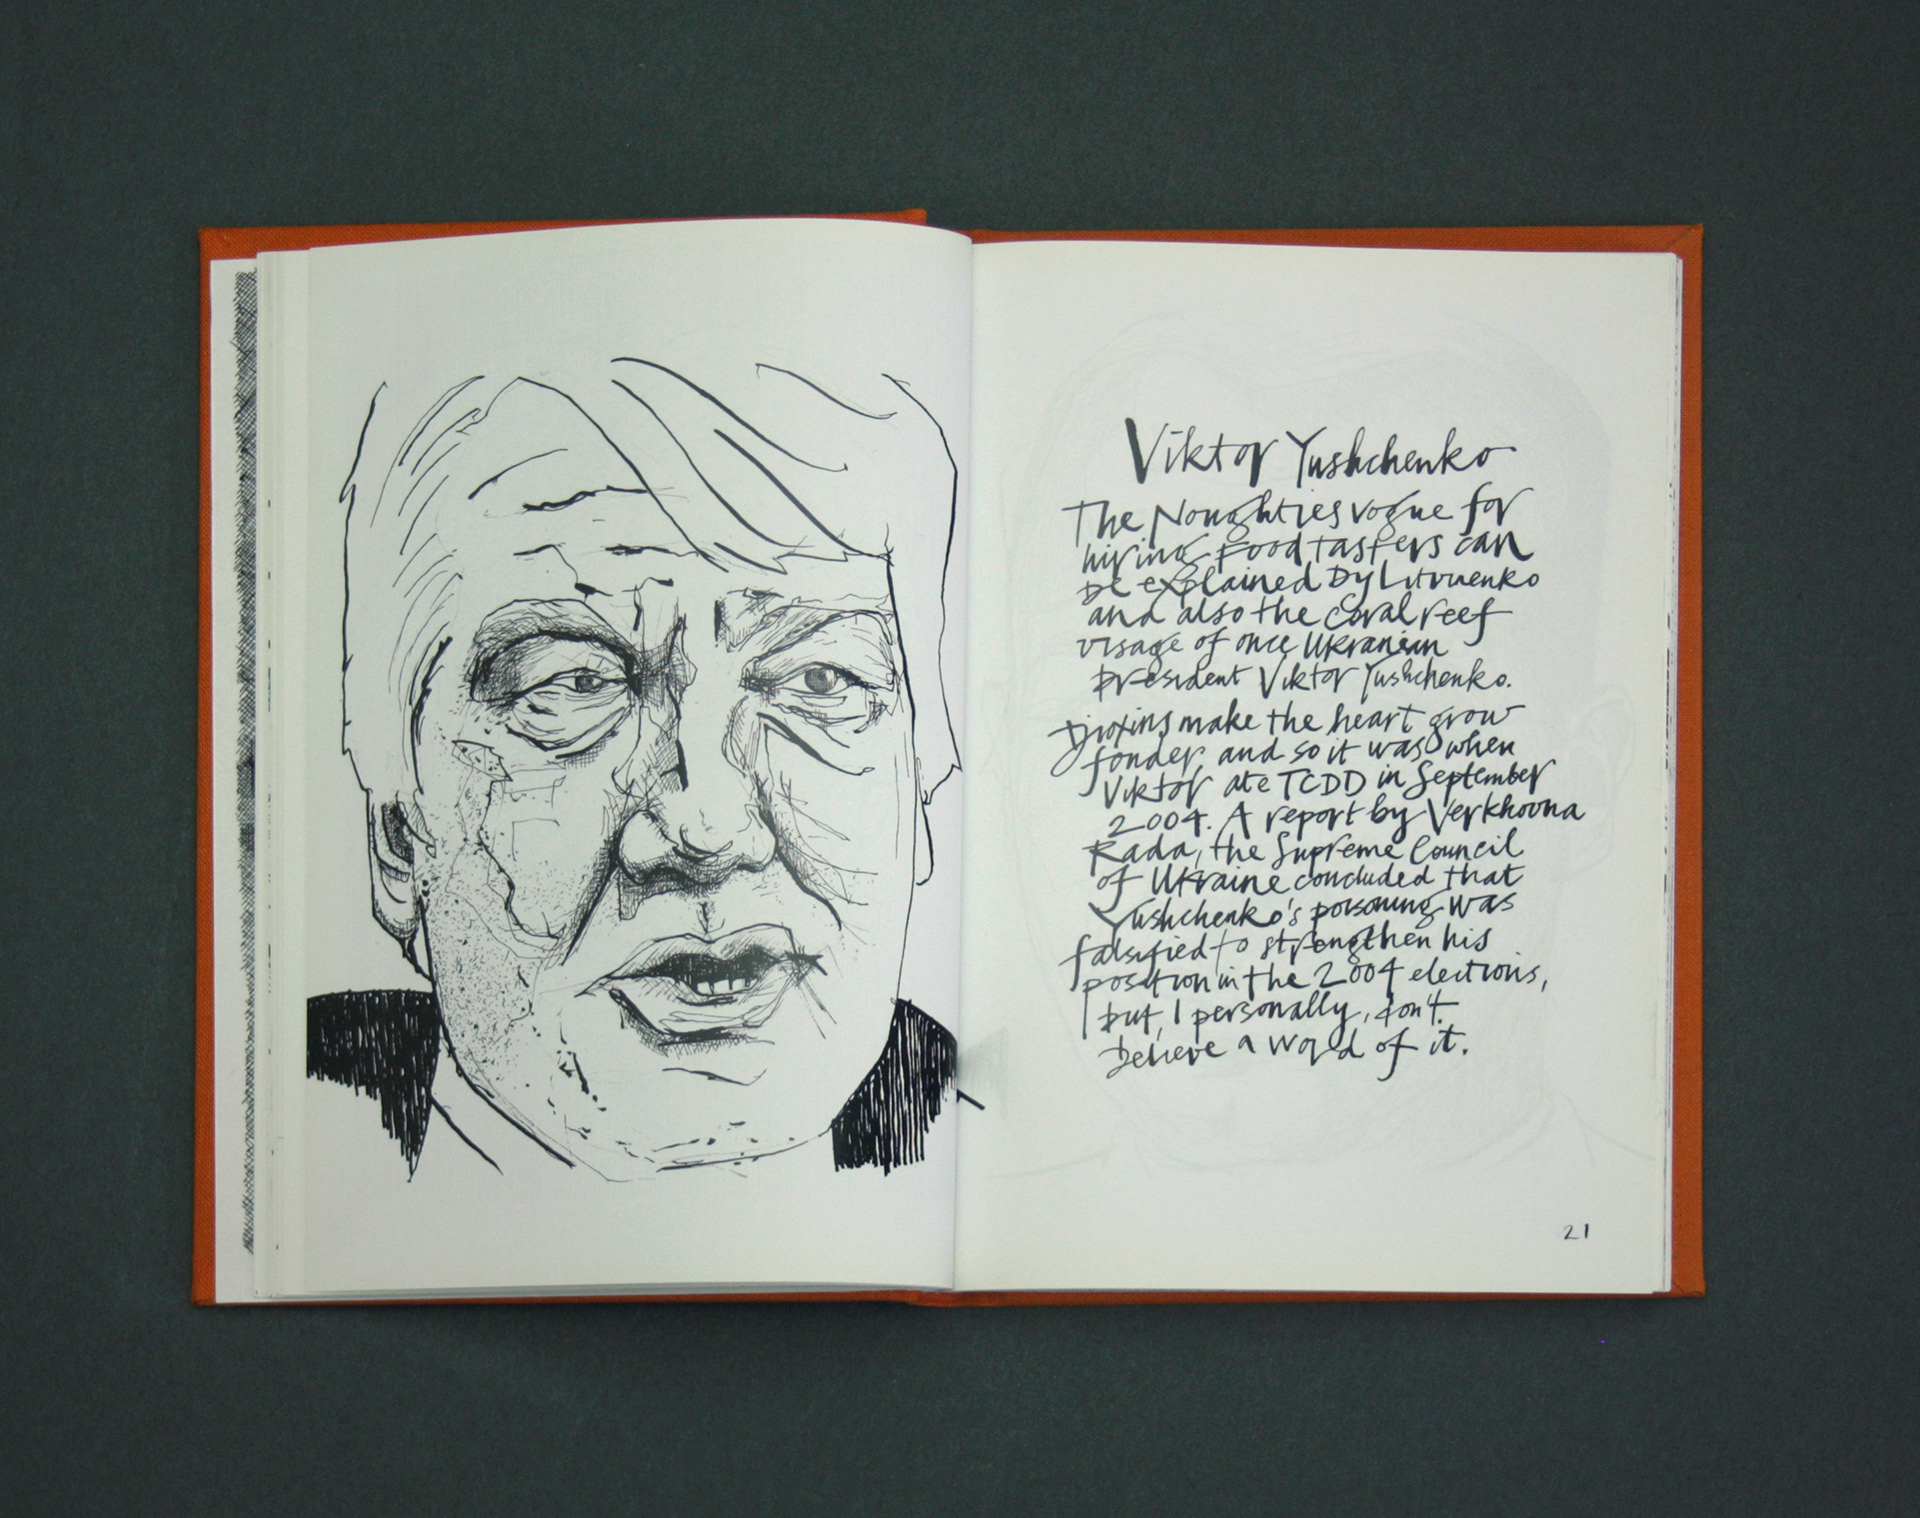 Viktor Yushchenko
The Noughties vogue for
hiring food tasters can
be explained by Litvinenko
and also the coral reef
visage of once Ukranian
president Viktor Yushchenko.
Dioxins make the heart grow
fonder, and so it was when
Viktor ate TCDD in September
2004. A report by Verkhovna
Rada, the Supreme Council
of Ukraine concluded that
Yushchenko's poisoning was
falsified to strengthen his
position in the 2004 elections,
but, I personally, don't
believe a word of it.
21